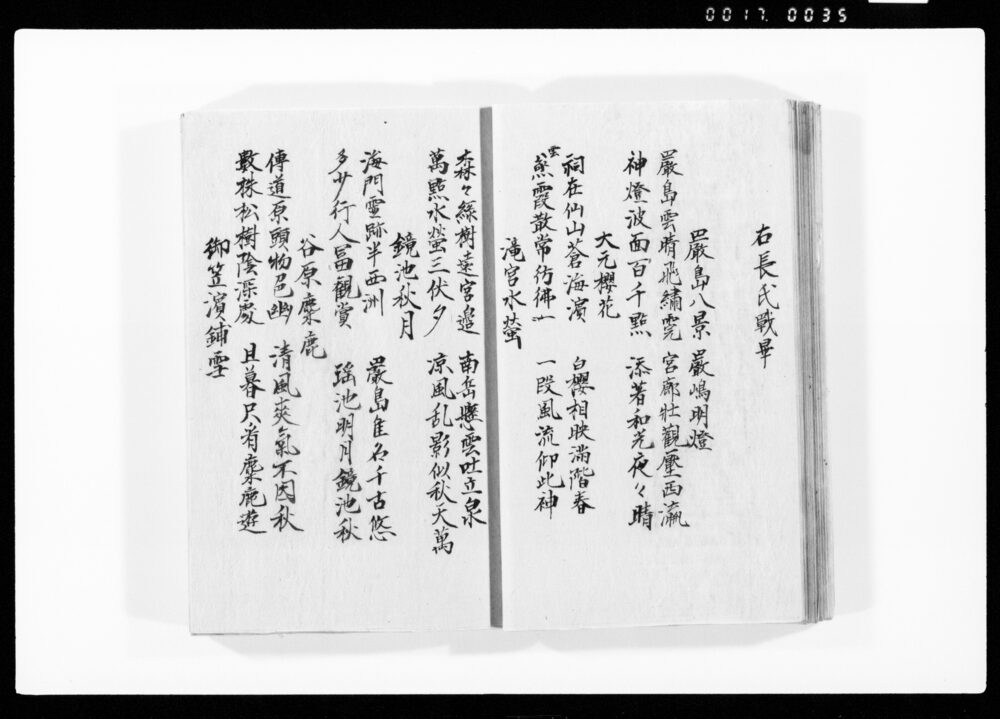 0017. 0035
右長氏戰畢
嚴島八景 嚴嶋明燈
嚴島雲晴飛繡甍 宮廊壯觀壓西瀛
神燈波面百千點 添著和光夜々晴
大元櫻花
祠在仙山蒼海濱 白櫻相映滿階春
雲蒸霞散常彷彿 一段風流仰此神
滝宮水螢
森々緑樹遠宮邉 南岳懸雲吐立泉
萬點水螢三伏夕 凉風乱影似秋天萬
鏡池秋月
海門靈跡半西洲 嚴島隹名千古悠
多少行人冨觀賞 瑶池明月鏡池秋
谷原麋鹿
傳道原頭物色幽 清風爽氣不因秋
數株松樹陰深處 旦暮尺有麋鹿遊
御笠濱鋪雪